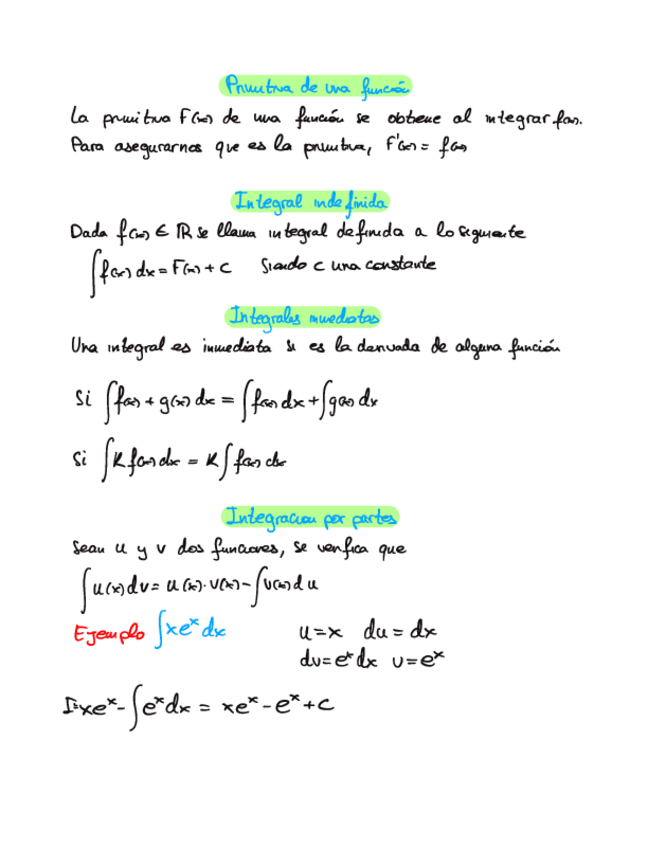 Primitiva de una función
La primitiva F(x) de una función se obtiene al integrar f(x).
Para asegurarnos que es la primitiva, F'(x) = f(x)
Integral indefinida
Dada f(x) ∈ ℝ se llama integral definida a lo siguiente
∫f(x) dx = F(x) + C Siendo C una constante
Integrales inmediatas
Una integral es inmediata si es la derivada de alguna función
Si ∫f(x) + g(x) dx = ∫f(x) dx + ∫g(x) dx
Si ∫K f(x) dx = K ∫f(x) dx
Integracion por partes
Sean u y v dos funciones, se verifica que
∫u(x) dv = u(x)·v(x) - ∫v(x) du
Ejemplo ∫xeˣ dx u = x du = dx
dv = eˣ dx v = eˣ
I = xeˣ - ∫eˣ dx = xeˣ - eˣ + C